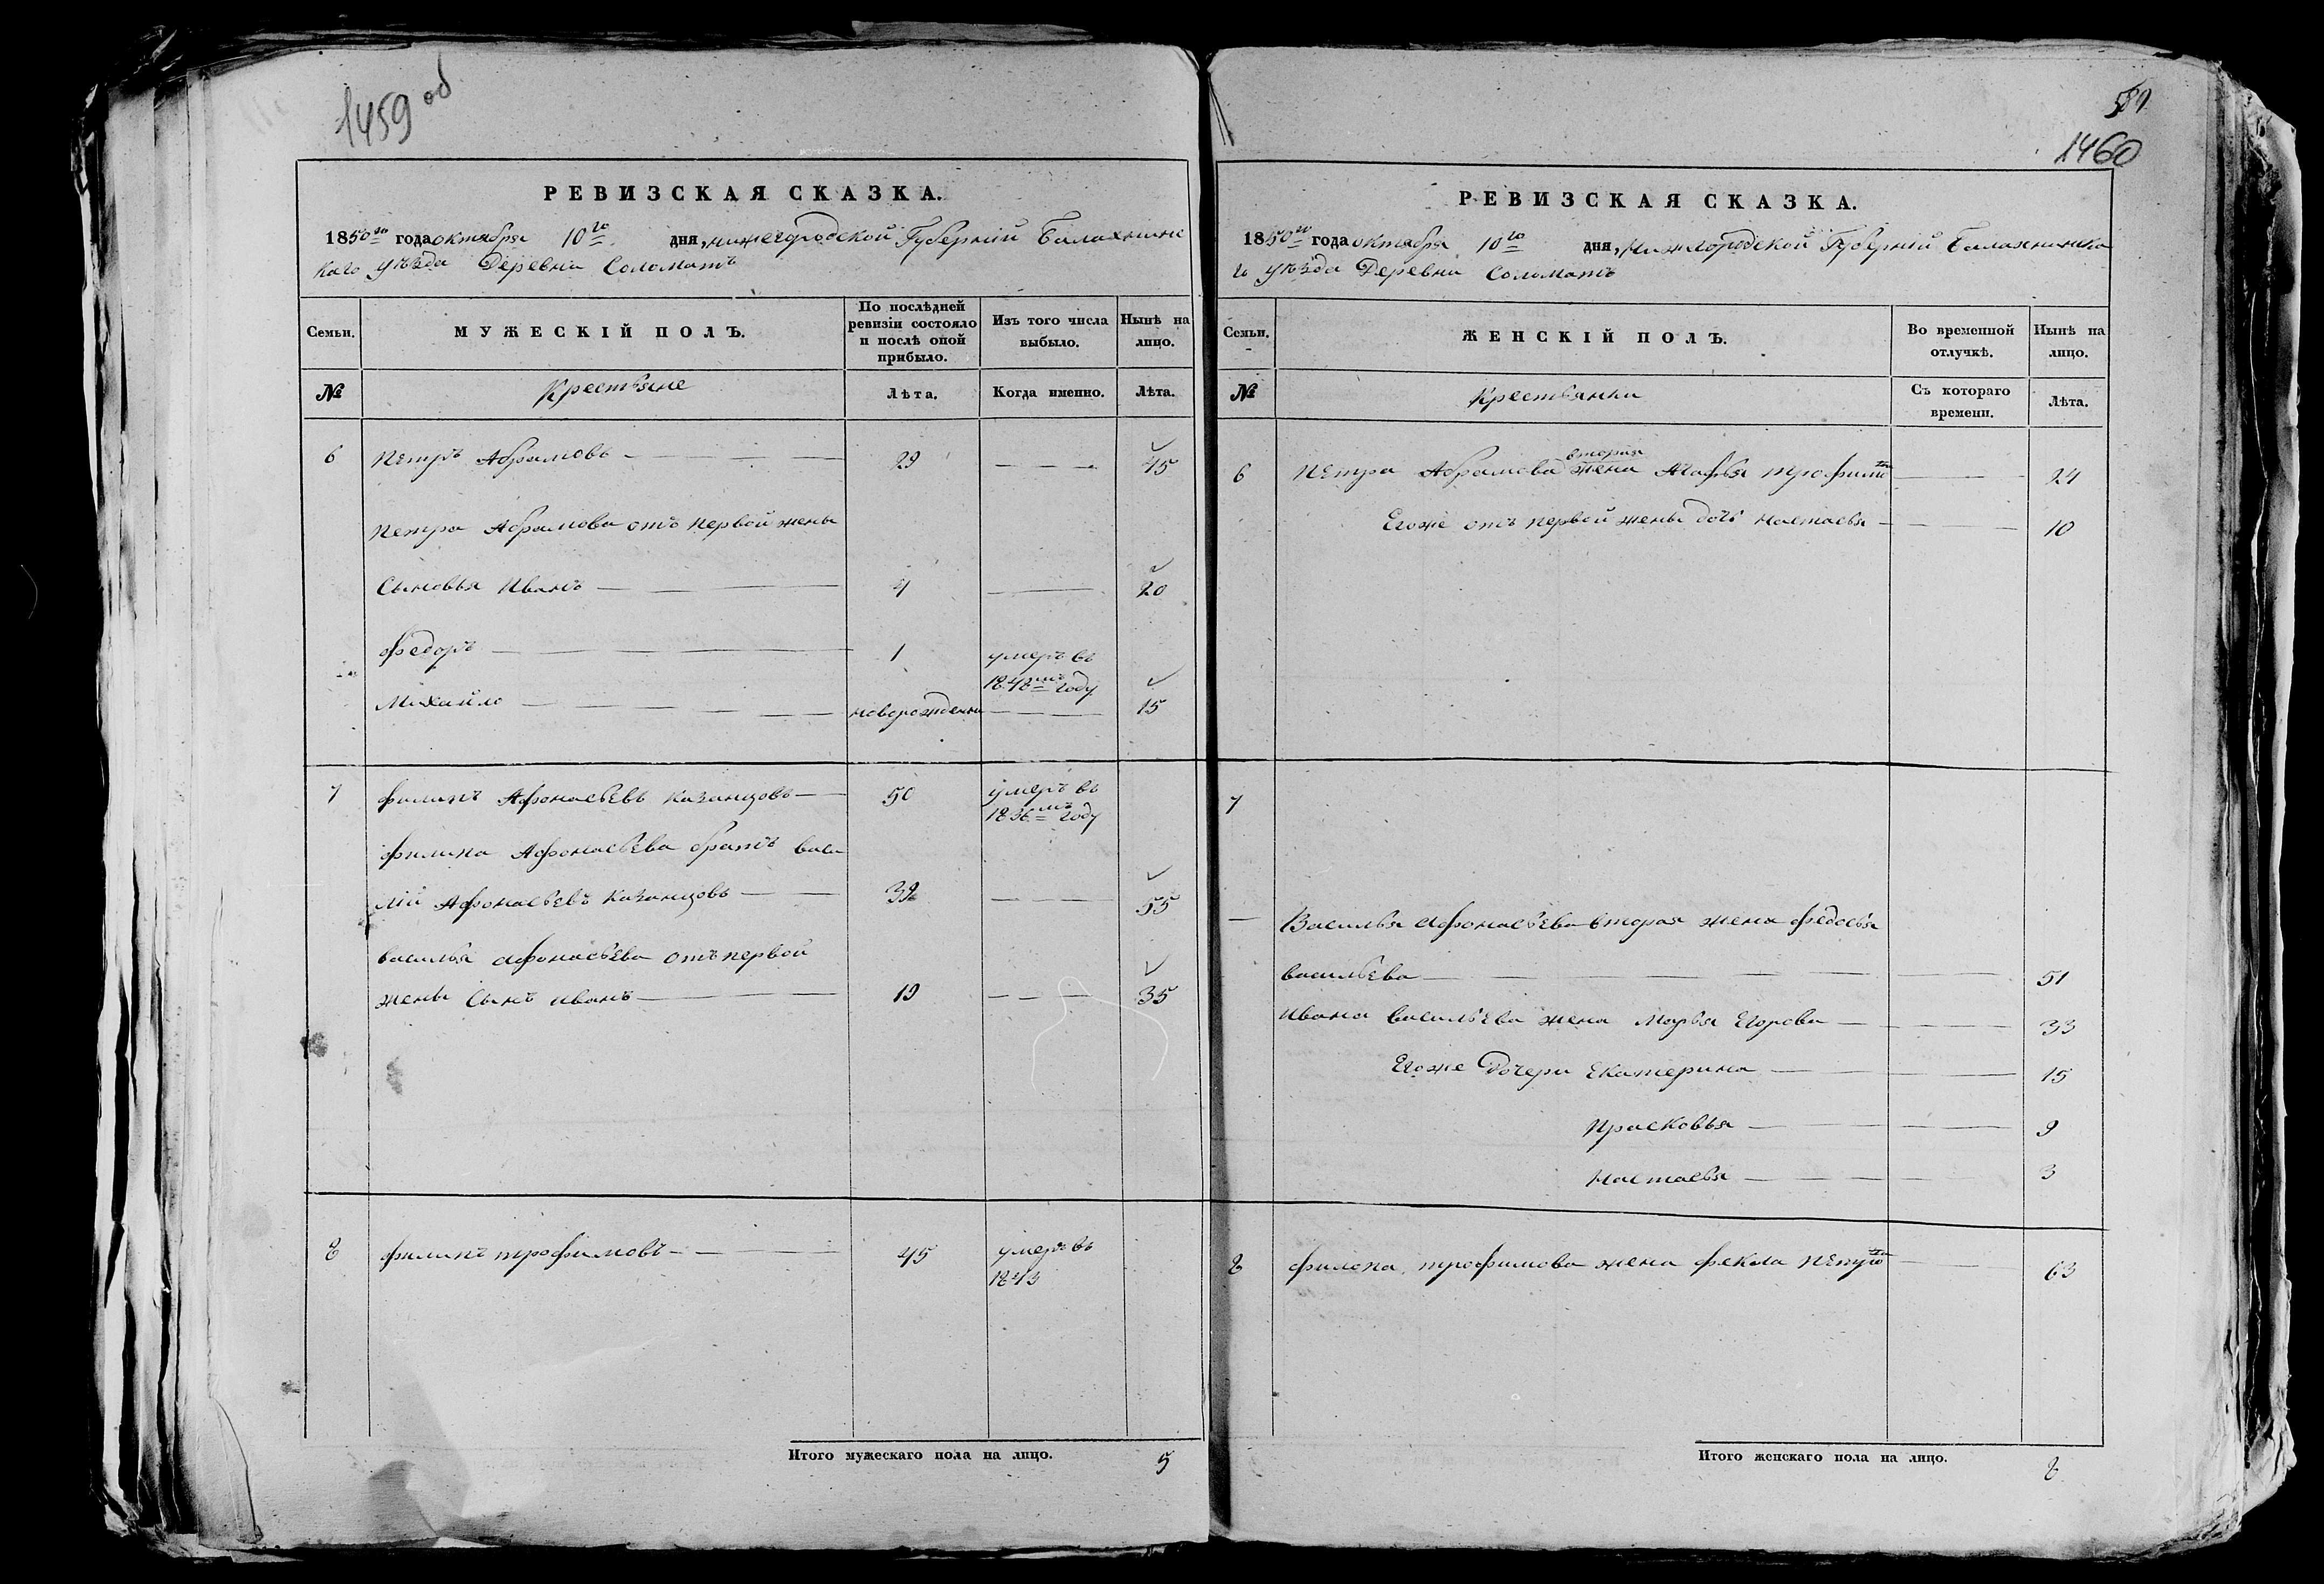 1459 об
РЕВИЗСКАЯ СКАЗКА.
1850го года октября 10го дня, нижегородской Губерній Балахнинс
каго уѣзда Деревни Соломатъ
Семьи. МУЖЕСКІЙ ПОЛЪ. По послѣдней ревизіи состояло и послѣ оной прибыло. Изъ того числа выбыло. Нынѣ на лицо.
№ Крестьяне Лѣта. Когда именно. Лѣта.
6 Петръ Абрамовъ 29 45
Петра Абрамова отъ первой жены
Сыновья Иванъ 4 20
Федоръ 1 умеръ въ
1848мъ году
Михайло новорожденны 15
7 Филипъ Афонасьевъ Казанцовъ 50 умеръ въ
1836мъ году
Филипа Афонасьева братъ васи
лій Афонасьевъ Казанцовъ 39 55
василья Афонасьева отъ первой
жены Сынъ иванъ 19 35
8 Филипъ трофимовъ 45 умеръ въ
1843
Итого мужескаго пола на лицо. 5
1460
РЕВИЗСКАЯ СКАЗКА.
1850го года октября 10го дня, Нижегородской Губерній Балахнинска
го уѣзда Деревни Соломатъ
Семьи. ЖЕНСКІЙ ПОЛЪ. Во временной отлучкѣ. Нынѣ на лицо.
№ Крестьянки Съ котораго времени. Лѣта.
вторая
6 Петра Абрамова жена Агафья трофимова 24
Егоже отъ первой жены дочь Настасья 10
7
Василья Афонасьева вторая жена Федосья
васильева 51
Ивана васильева жена Марья Егорова 33
Егоже Дочери Екатерина 15
Прасковья 9
Настасья 3
8 Филипа трофимова жена Фекла Петро 63
Итого женскаго пола на лицо. 8